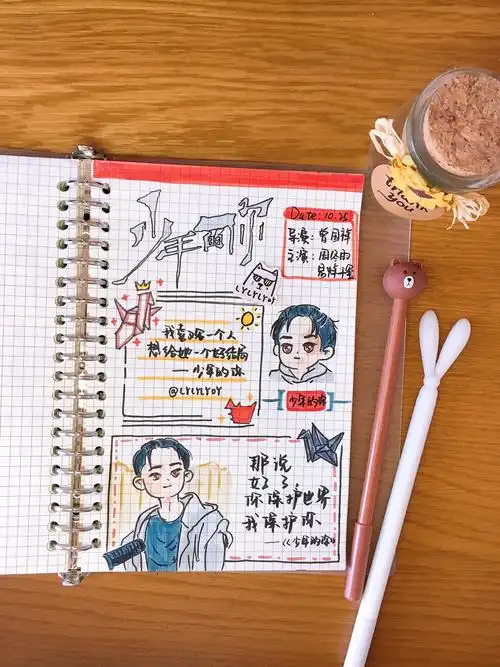 少年的你
Date: 10.25
导演：曾国祥
主演：周冬雨
易烊千玺
LYLYLYOY
我喜欢一个人
想给她一个好结局
——少年的你
@LYLYLYOY
少年的你
那说
好了，
你保护世界
我保护你
——《少年的你》